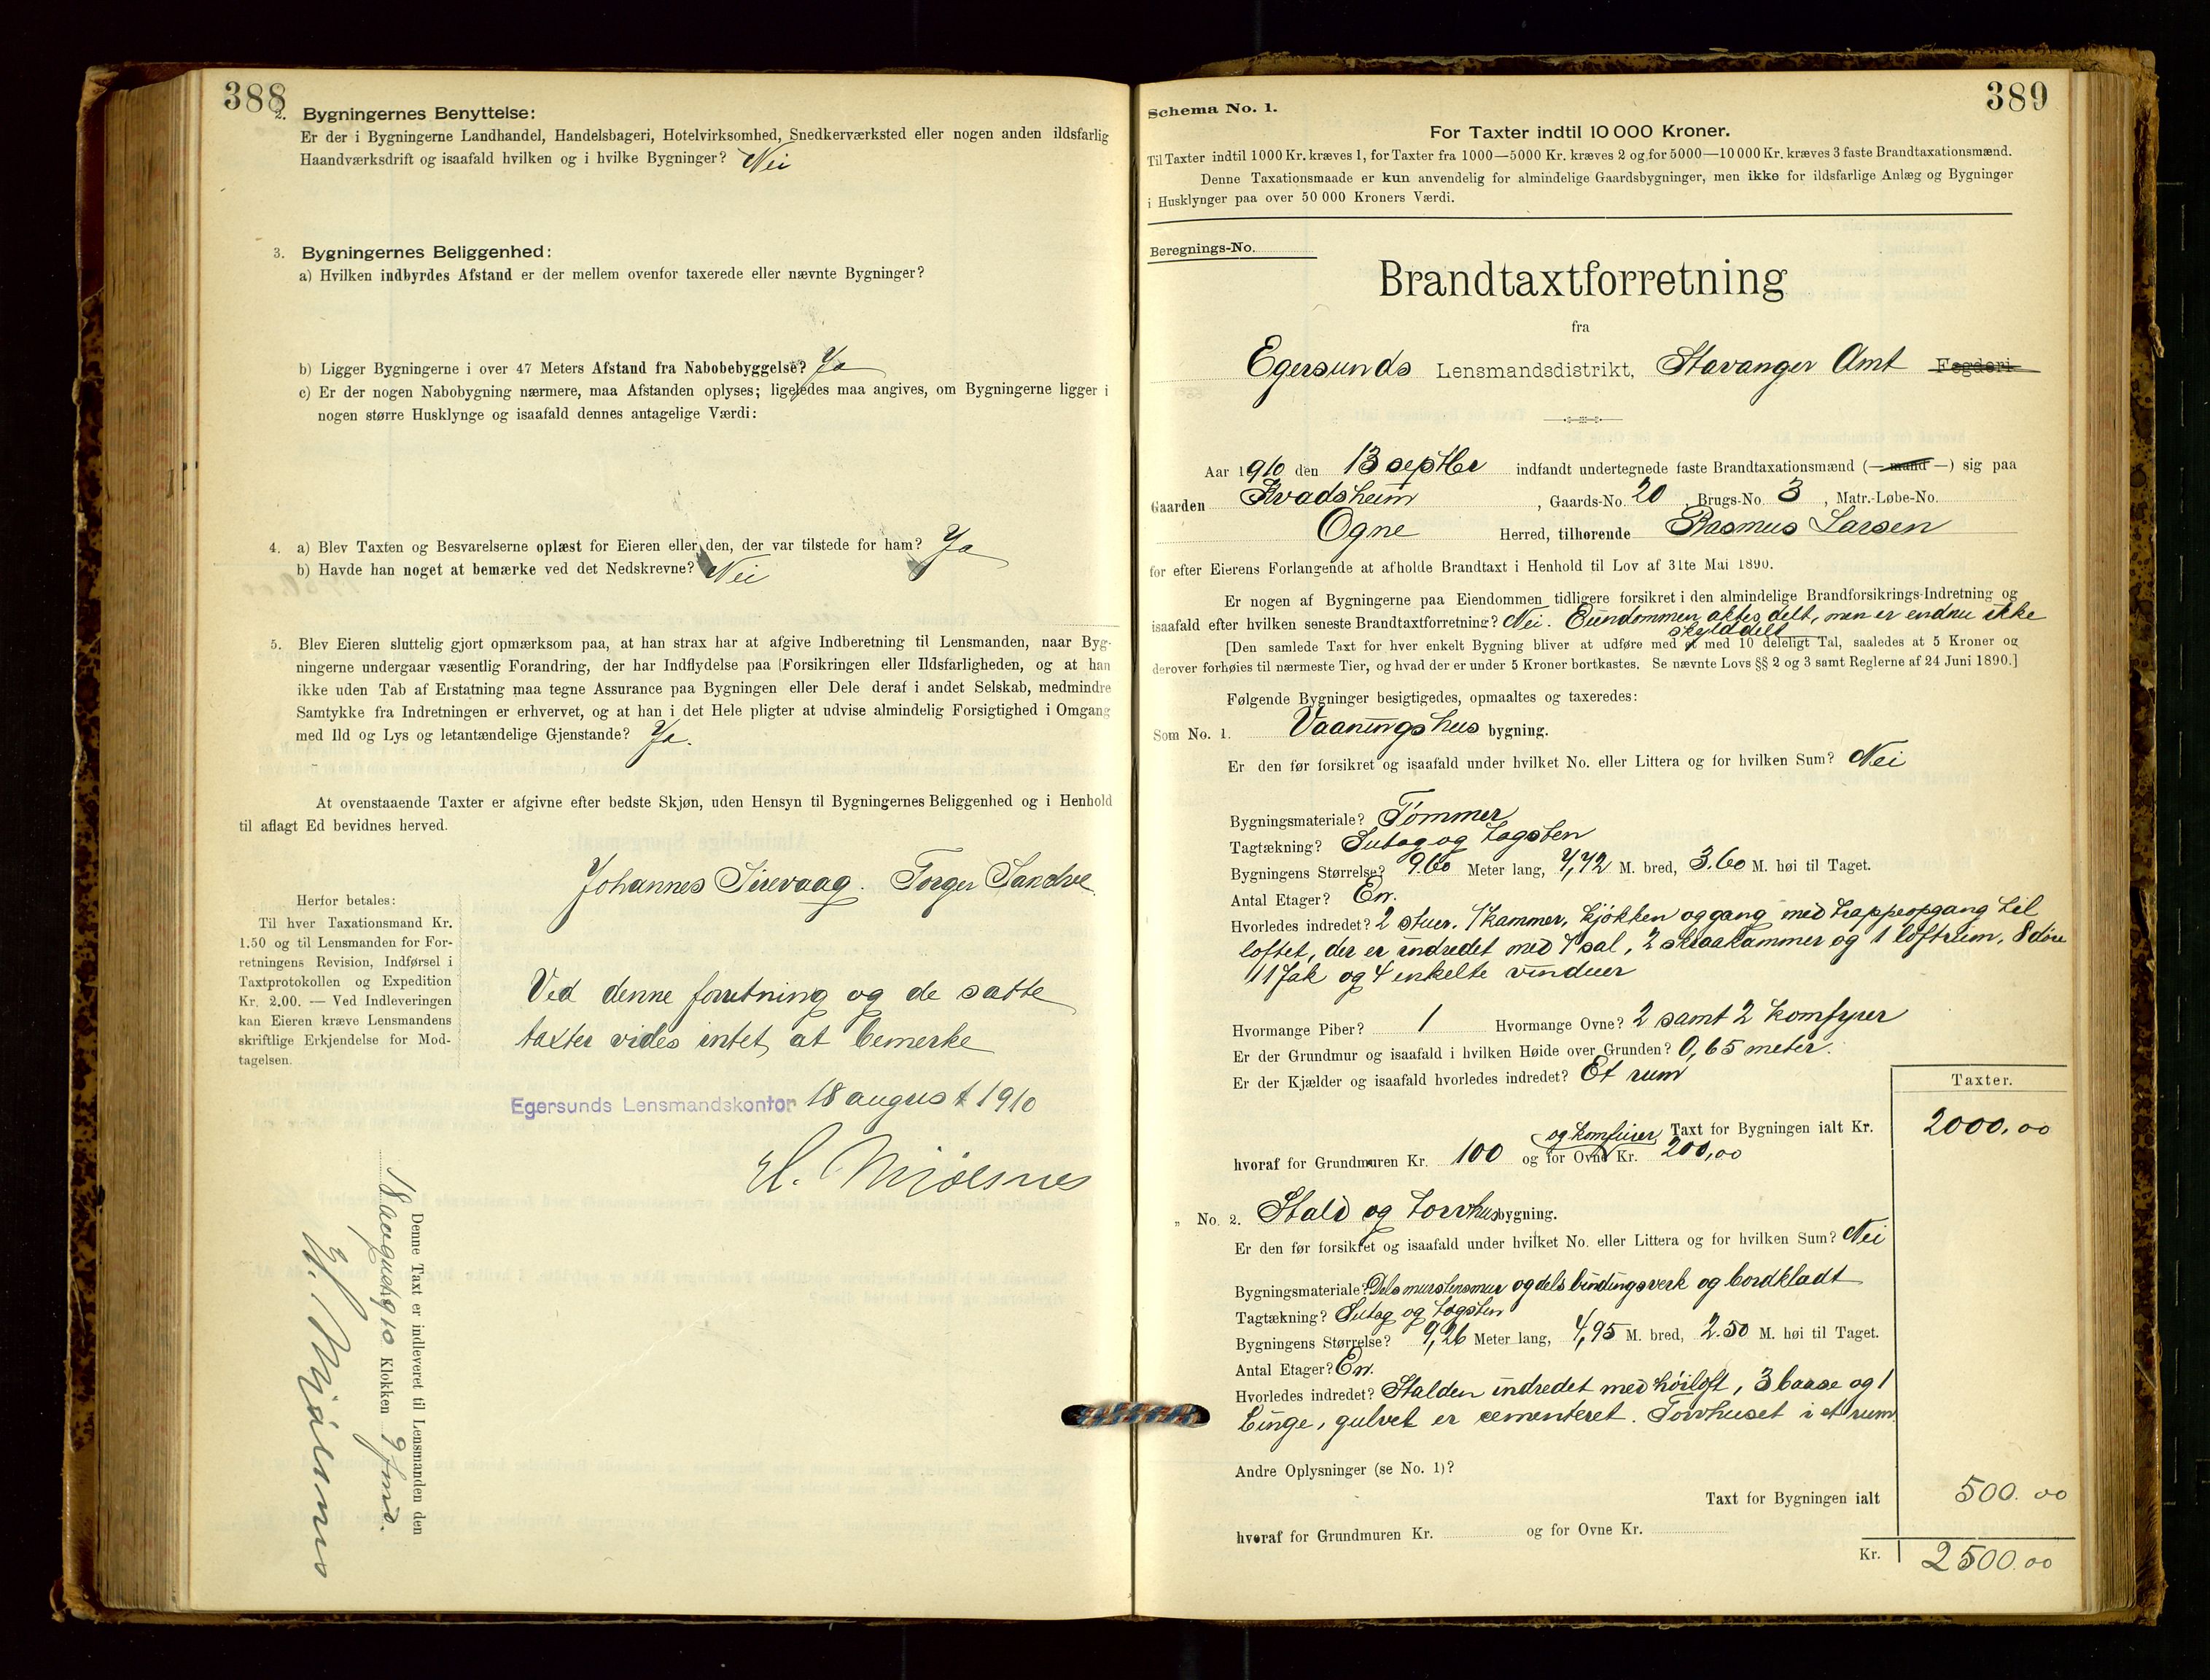 388
2. Bygningernes Benyttelse:
Er der i Bygningerne Landhandel, Handelsbageri, Hotelvirksomhed, Snedkerværksted eller nogen anden ildsfarlig
Haandværksdrift og isaafald hvilken og i hvilke Bygninger? Nei
3. Bygningernes Beliggenhed:
a) Hvilken indbyrdes Afstand er der mellem ovenfor taxerede eller nævnte Bygninger?
b) Ligger Bygningerne i over 47 Meters Afstand fra Nabobebyggelse? Ja
c) Er der nogen Nabobygning nærmere, maa Afstanden oplyses; ligeledes maa angives, om Bygningerne ligger i
nogen større Husklynge og isaafald dennes antagelige Værdi:
4. a) Blev Taxten og Besvarelserne oplæst for Eieren eller den, der var tilstede for ham? Ja
b) Havde han noget at bemærke ved det Nedskrevne? Nei
5. Blev Eieren sluttelig gjort opmærksom paa, at han strax har at afgive Indberetning til Lensmanden, naar Byg-
ningerne undergaar væsentlig Forandring, der har Indflydelse paa Forsikringen eller Ildsfarligheden, og at han
ikke uden Tab af Erstatning maa tegne Assurance paa Bygningen eller Dele deraf i andet Selskab, medmindre
Samtykke fra Indretningen er erhvervet, og at han i det Hele pligter at udvise almindelig Forsigtighed i Omgang
med Ild og Lys og letantændelige Gjenstande? Ja.
At ovenstaaende Taxter er afgivne efter bedste Skjøn, uden Hensyn til Bygningernes Beliggenhed og i Henhold
til aflagt Ed bevidnes herved.
Johannes Sirevaag. Torger Sandve.
Herfor betales:
Til hver Taxationsmand Kr.
1.50 og til Lensmanden for For-
retningens Revision, Indførsel i
Taxtprotokollen og Expedition
Kr. 2.00. — Ved Indleveringen
kan Eieren kræve Lensmandens
skriftlige Erkjendelse for Mod-
tagelsen.
Ved denne forretning og de satte
taxter vides intet at bemerke
Egersunds Lensmandskontor 18 august 1910
H. Mjölsnes
Denne Taxt er indleveret til Lensmanden den
18 august 1910 Klokken 9 fmd.
H. Mjölsnes
389
Schema No. 1.
For Taxter indtil 10 000 Kroner.
Til Taxter indtil 1000 Kr. kræves 1, for Taxter fra 1000—5000 Kr. kræves 2 og for 5000—10 000 Kr. kræves 3 faste Brandtaxationsmænd.
Denne Taxationsmaade er kun anvendelig for almindelige Gaardsbygninger, men ikke for ildsfarlige Anlæg og Bygninger
i Husklynger paa over 50 000 Kroners Værdi.
Beregnings-No.
Brandtaxtforretning
fra
Egersunds Lensmandsdistrikt, Stavanger Amt Fogderi
Aar 1910 den 13 septbr indfandt undertegnede faste Brandtaxationsmænd (— mand —) sig paa
Gaarden Kvadsheim, Gaards-No. 20 Brugs-No. 3, Matr.-Løbe-No.
Ogne Herred, tilhørende Rasmus Larsen
for efter Eierens Forlangende at afholde Brandtaxt i Henhold til Lov af 31te Mai 1890.
Er nogen af Bygningerne paa Eiendommen tidligere forsikret i den almindelige Brandforsikrings-Indretning og
isaafald efter hvilken seneste Brandtaxtforretning? Nei. Eiendommen aktes delt, men er endnu ikke
skylddelt
[Den samlede Taxt for hver enkelt Bygning bliver at udføre med et med 10 deleligt Tal, saaledes at 5 Kroner og
derover forhøies til nærmeste Tier, og hvad der er under 5 Kroner bortkastes. Se nævnte Lovs §§ 2 og 3 samt Reglerne af 24 Juni 1890.]
Følgende Bygninger besigtigedes, opmaaltes og taxeredes:
Som No. 1. Vaaningshus bygning.
Er den før forsikret og isaafald under hvilket No. eller Littera og for hvilken Sum? Nei
Bygningsmateriale? Tømmer
Tagtækning? Sutag og tagsten
Bygningens Størrelse? 9.60 Meter lang, 7,72 M. bred, 3.60 M. høi til Taget.
Antal Etager? En.
Hvorledes indredet? 2 stuer. 1 kammer, kjøkken og gang med trappeopgang til
loftet, der er indredet med 1 sal, 2 skraakammer og 1 loftrum, 8 döre
11 fak og 4 enkelte vinduer
Hvormange Piber? 1 Hvormange Ovne? 2 samt 2 komfyrer
Er der Grundmur og isaafald i hvilken Høide over Grunden? 0,65 meter.
Er der Kjælder og isaafald hvorledes indredet? Et rum
Taxter.
og komfyrer Taxt for Bygningen ialt Kr. 2000,00
hvoraf for Grundmuren Kr. 100 og for Ovne Kr. 200,00
„ No. 2. Stald og torvhus bygning.
Er den før forsikret og isaafald under hvilket No. eller Littera og for hvilken Sum? Nei
Bygningsmateriale? Dels murstensmur og dels bindingsverk og bordkladt
Tagtækning? Sutag og tagsten
Bygningens Størrelse? 9,26 Meter lang, 4,95 M. bred, 2.50 M. høi til Taget.
Antal Etager? En.
Hvorledes indredet? Stalden indredet med höiloft, 3 baase og 1
binge, gulvet er cementeret. Torvhuset i et rum
Andre Oplysninger (se No. 1)?
Taxt for Bygningen ialt 500.00
hvoraf for Grundmuren Kr. og for Ovne Kr.
Kr. 2500.00